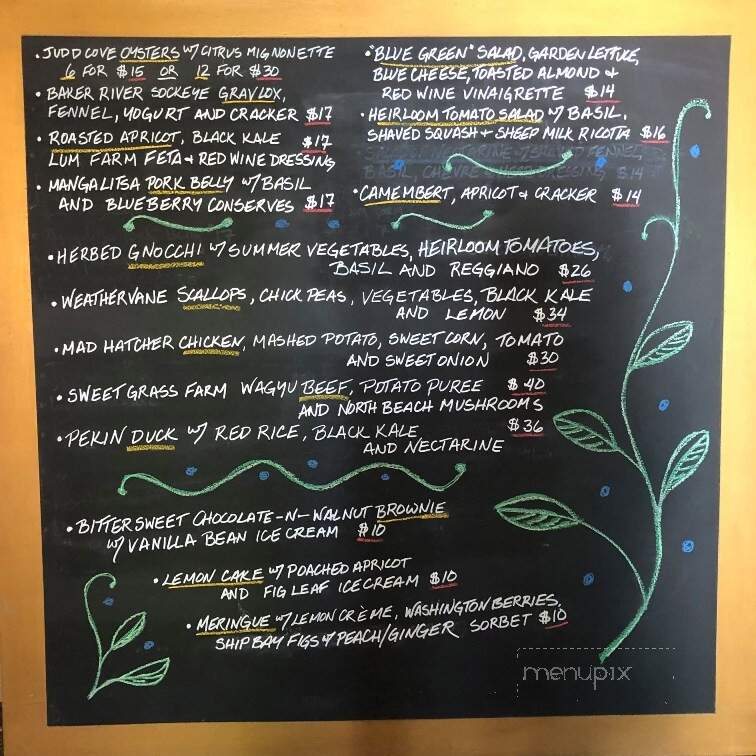 • JUDD COVE OYSTERS W/ CITRUS MIGNONETTE
6 FOR $15 OR 12 FOR $30
• BAKER RIVER SOCKEYE GRAVLOX,
FENNEL, YOGURT AND CRACKER $17
• ROASTED APRICOT, BLACK KALE $17
LUM FARM FETA + RED WINE DRESSING
• MANGALITSA PORK BELLY W/ BASIL
AND BLUEBERRY CONSERVES $17
• "BLUE GREEN" SALAD, GARDEN LETTUCE,
BLUE CHEESE, TOASTED ALMOND +
RED WINE VINAIGRETTE $14
• HEIRLOOM TOMATO SALAD W/ BASIL,
SHAVED SQUASH + SHEEP MILK RICOTTA $16
BASIL, $14
• CAMEMBERT, APRICOT + CRACKER $14
• HERBED GNOCCHI W/ SUMMER VEGETABLES, HEIRLOOM TOMATOES,
BASIL AND REGGIANO $26
• WEATHERVANE SCALLOPS, CHICK PEAS, VEGETABLES, BLACK KALE
AND LEMON $34
• MAD HATCHER CHICKEN, MASHED POTATO, SWEET CORN, TOMATO
AND SWEET ONION $30
• SWEET GRASS FARM WAGYU BEEF, POTATO PUREE $40
AND NORTH BEACH MUSHROOMS
• PEKIN DUCK W/ RED RICE, BLACK KALE $36
AND NECTARINE
• BITTERSWEET CHOCOLATE-N-WALNUT BROWNIE
W/ VANILLA BEAN ICE CREAM $10
• LEMON CAKE W/ POACHED APRICOT
AND FIG LEAF ICE CREAM $10
• MERINGUE W/ LEMON CRÈME, WASHINGTON BERRIES,
SHIP BAY FIGS + PEACH/GINGER SORBET $10
menupix